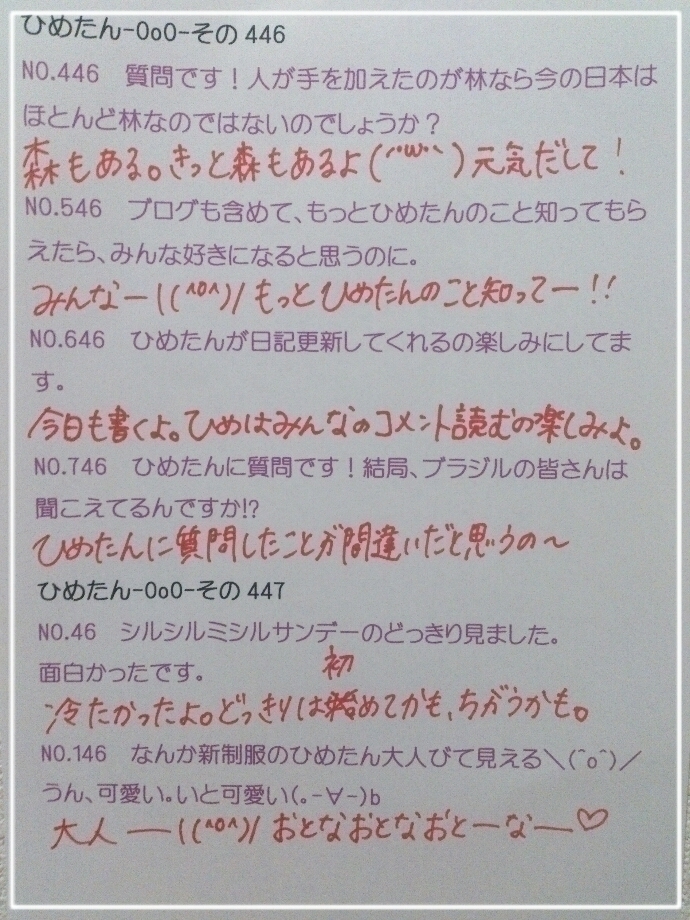 ひめたん-OoO-その446
NO.446　質問です！人が手を加えたのが林なら今の日本は
ほとんど林なのではないのでしょうか？
森もある。きっと森もあるよ(´ω｀)元気だして！
NO.546　ブログも含めて、もっとひめたんのこと知ってもら
えたら、みんな好きになると思うのに。
みんなー!((^o^)/もっとひめたんのこと知ってー!!
NO.646　ひめたんが日記更新してくれるの楽しみにしてま
す。
今日も書くよ。ひめはみんなのコメント読むの楽しみよ。
NO.746　ひめたんに質問です！結局、ブラジルの皆さんは
聞こえてるんですか!?
ひめたんに質問したことが間違いだと思うの〜
ひめたん-OoO-その447
NO.46　シルシルミシルサンデーのどっきり見ました。
面白かったです。
冷たかったよ。どっきりは初めてかも、ちがうかも。
NO.146　なんか新制服のひめたん大人びて見える＼(^o^)／
うん、可愛い。いと可愛い(。-∀-)b
大人ー!((^o^)/ おとなおとなおとーなー♡